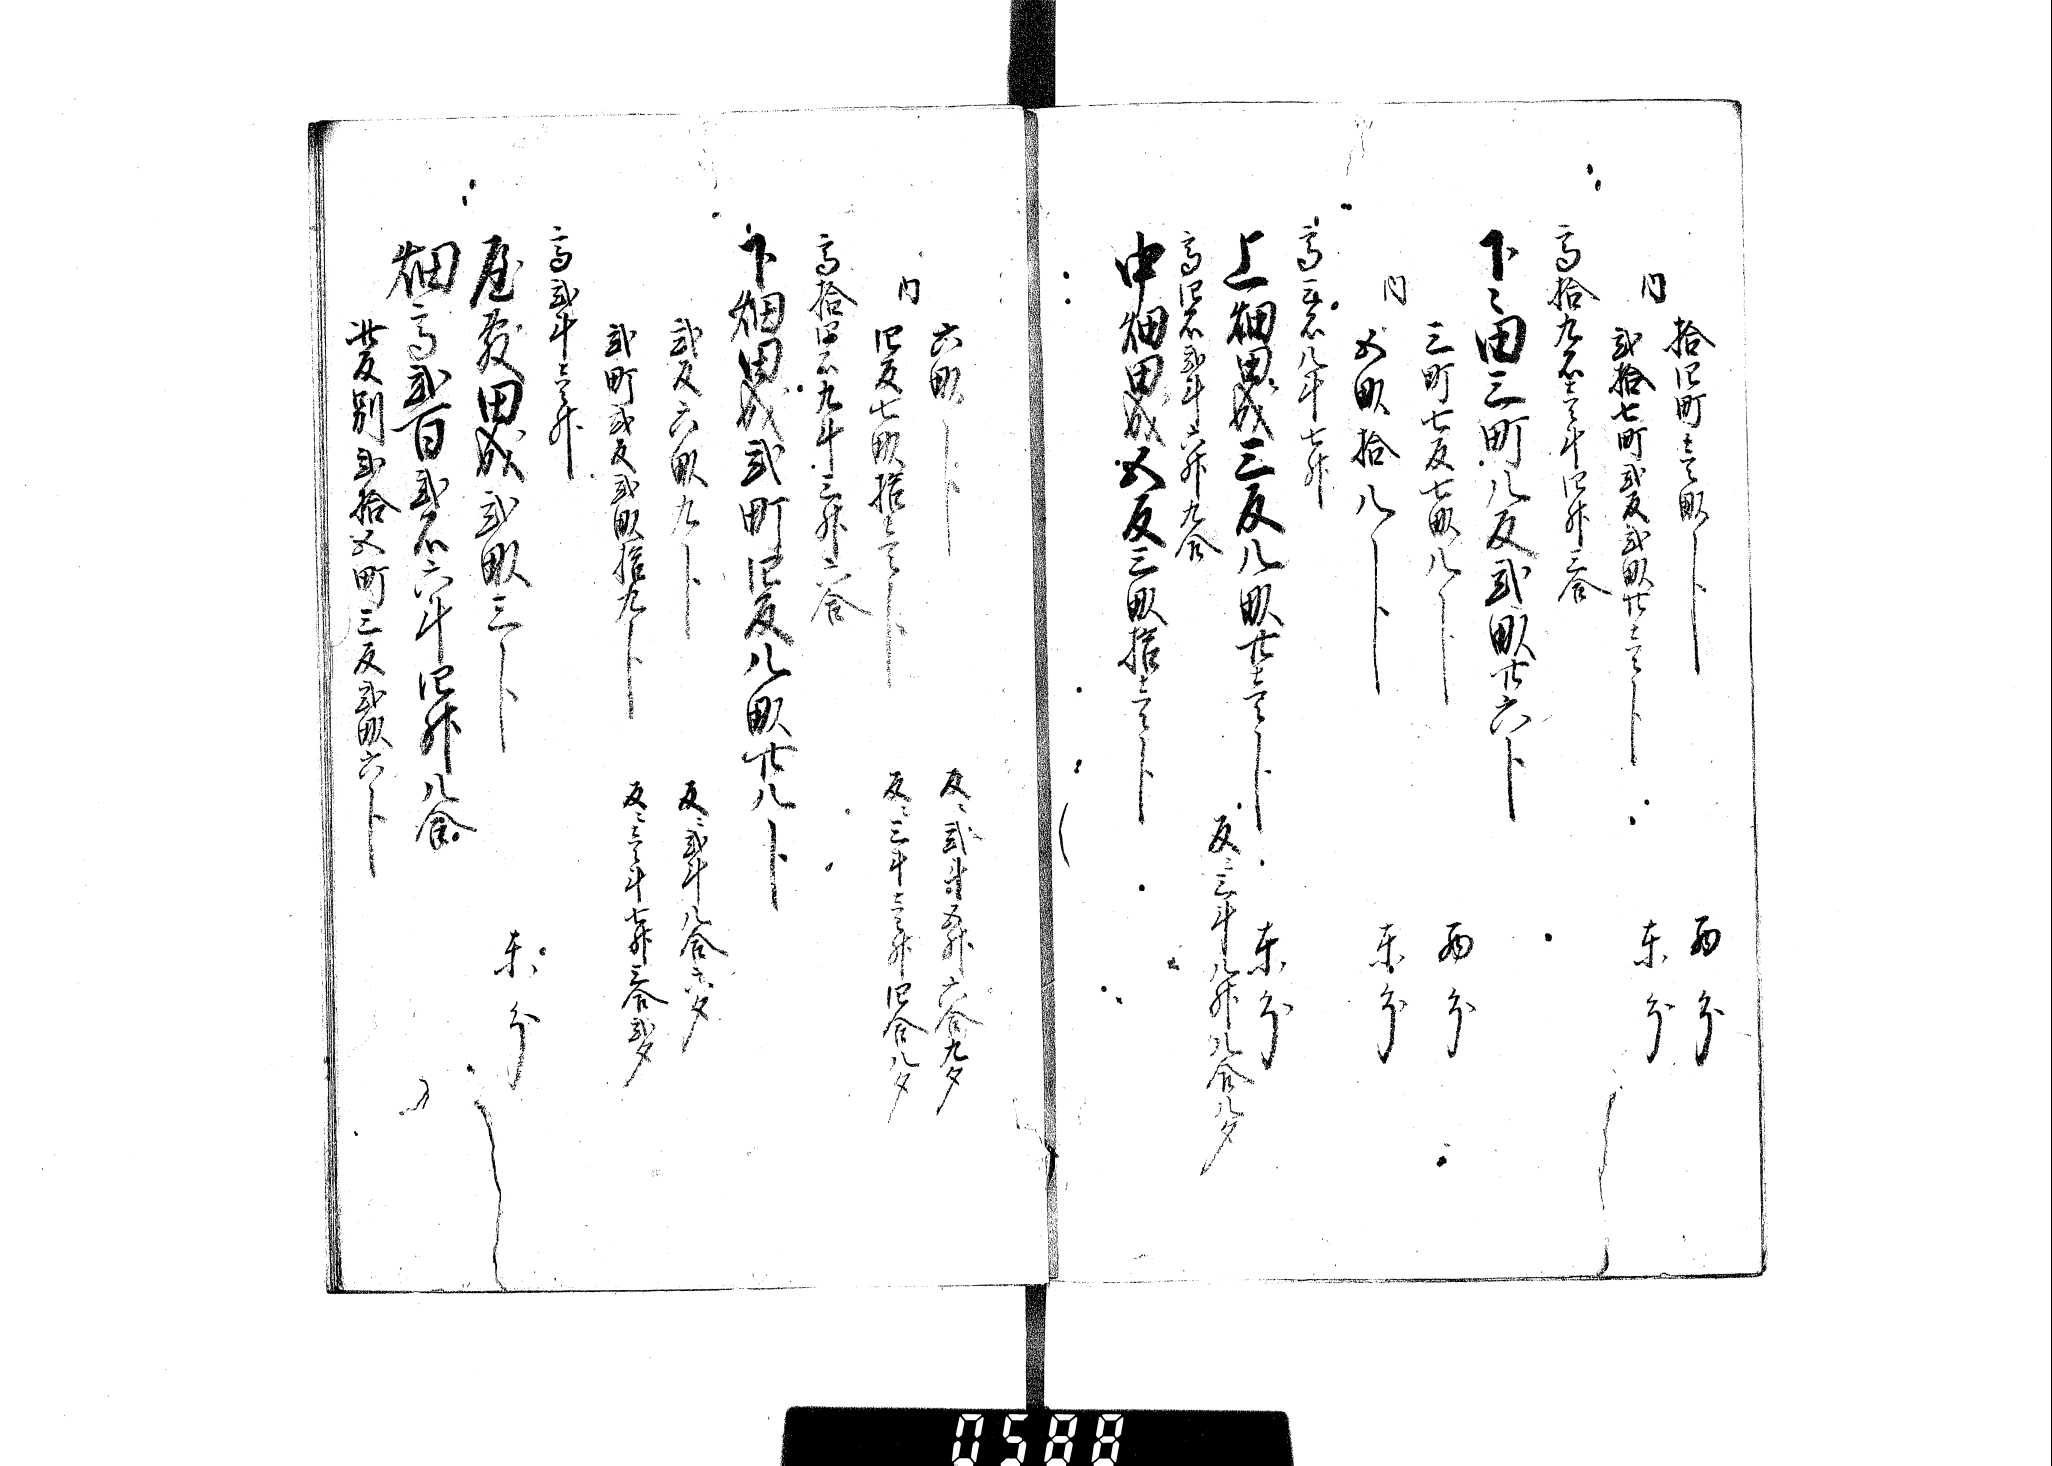 拾四町壱畝卜　西分
内　弐拾七町弐反弐畝廿壱卜　東分
高拾九石壱斗四升三合
下々田三町八反弐畝廿六卜
三町七反七畝八卜　西分
内　五畝拾八卜　東分
高壱石八斗七升
上畑田成三反八畝廿壱卜　東分
反ニ三斗八升八合八夕
高四石弐斗六升九合
中畑田成五反三畝拾壱卜
六畝卜　反ニ弐斗五升六合九夕
内　四反七畝拾壱卜　反ニ三斗壱升四合八夕
高拾四石九斗三升六合
下畑田成弐町四反八畝廿八卜
弐反六畝九卜　反ニ弐斗八合六夕
弐町弐反弐畝拾九卜　反ニ壱斗七升三合弐夕
高弐斗壱升
屋敷田成弐畝三卜　東分
畑高弐百弐石六斗四升八合
此反別弐拾五町三反弐畝六卜
0588